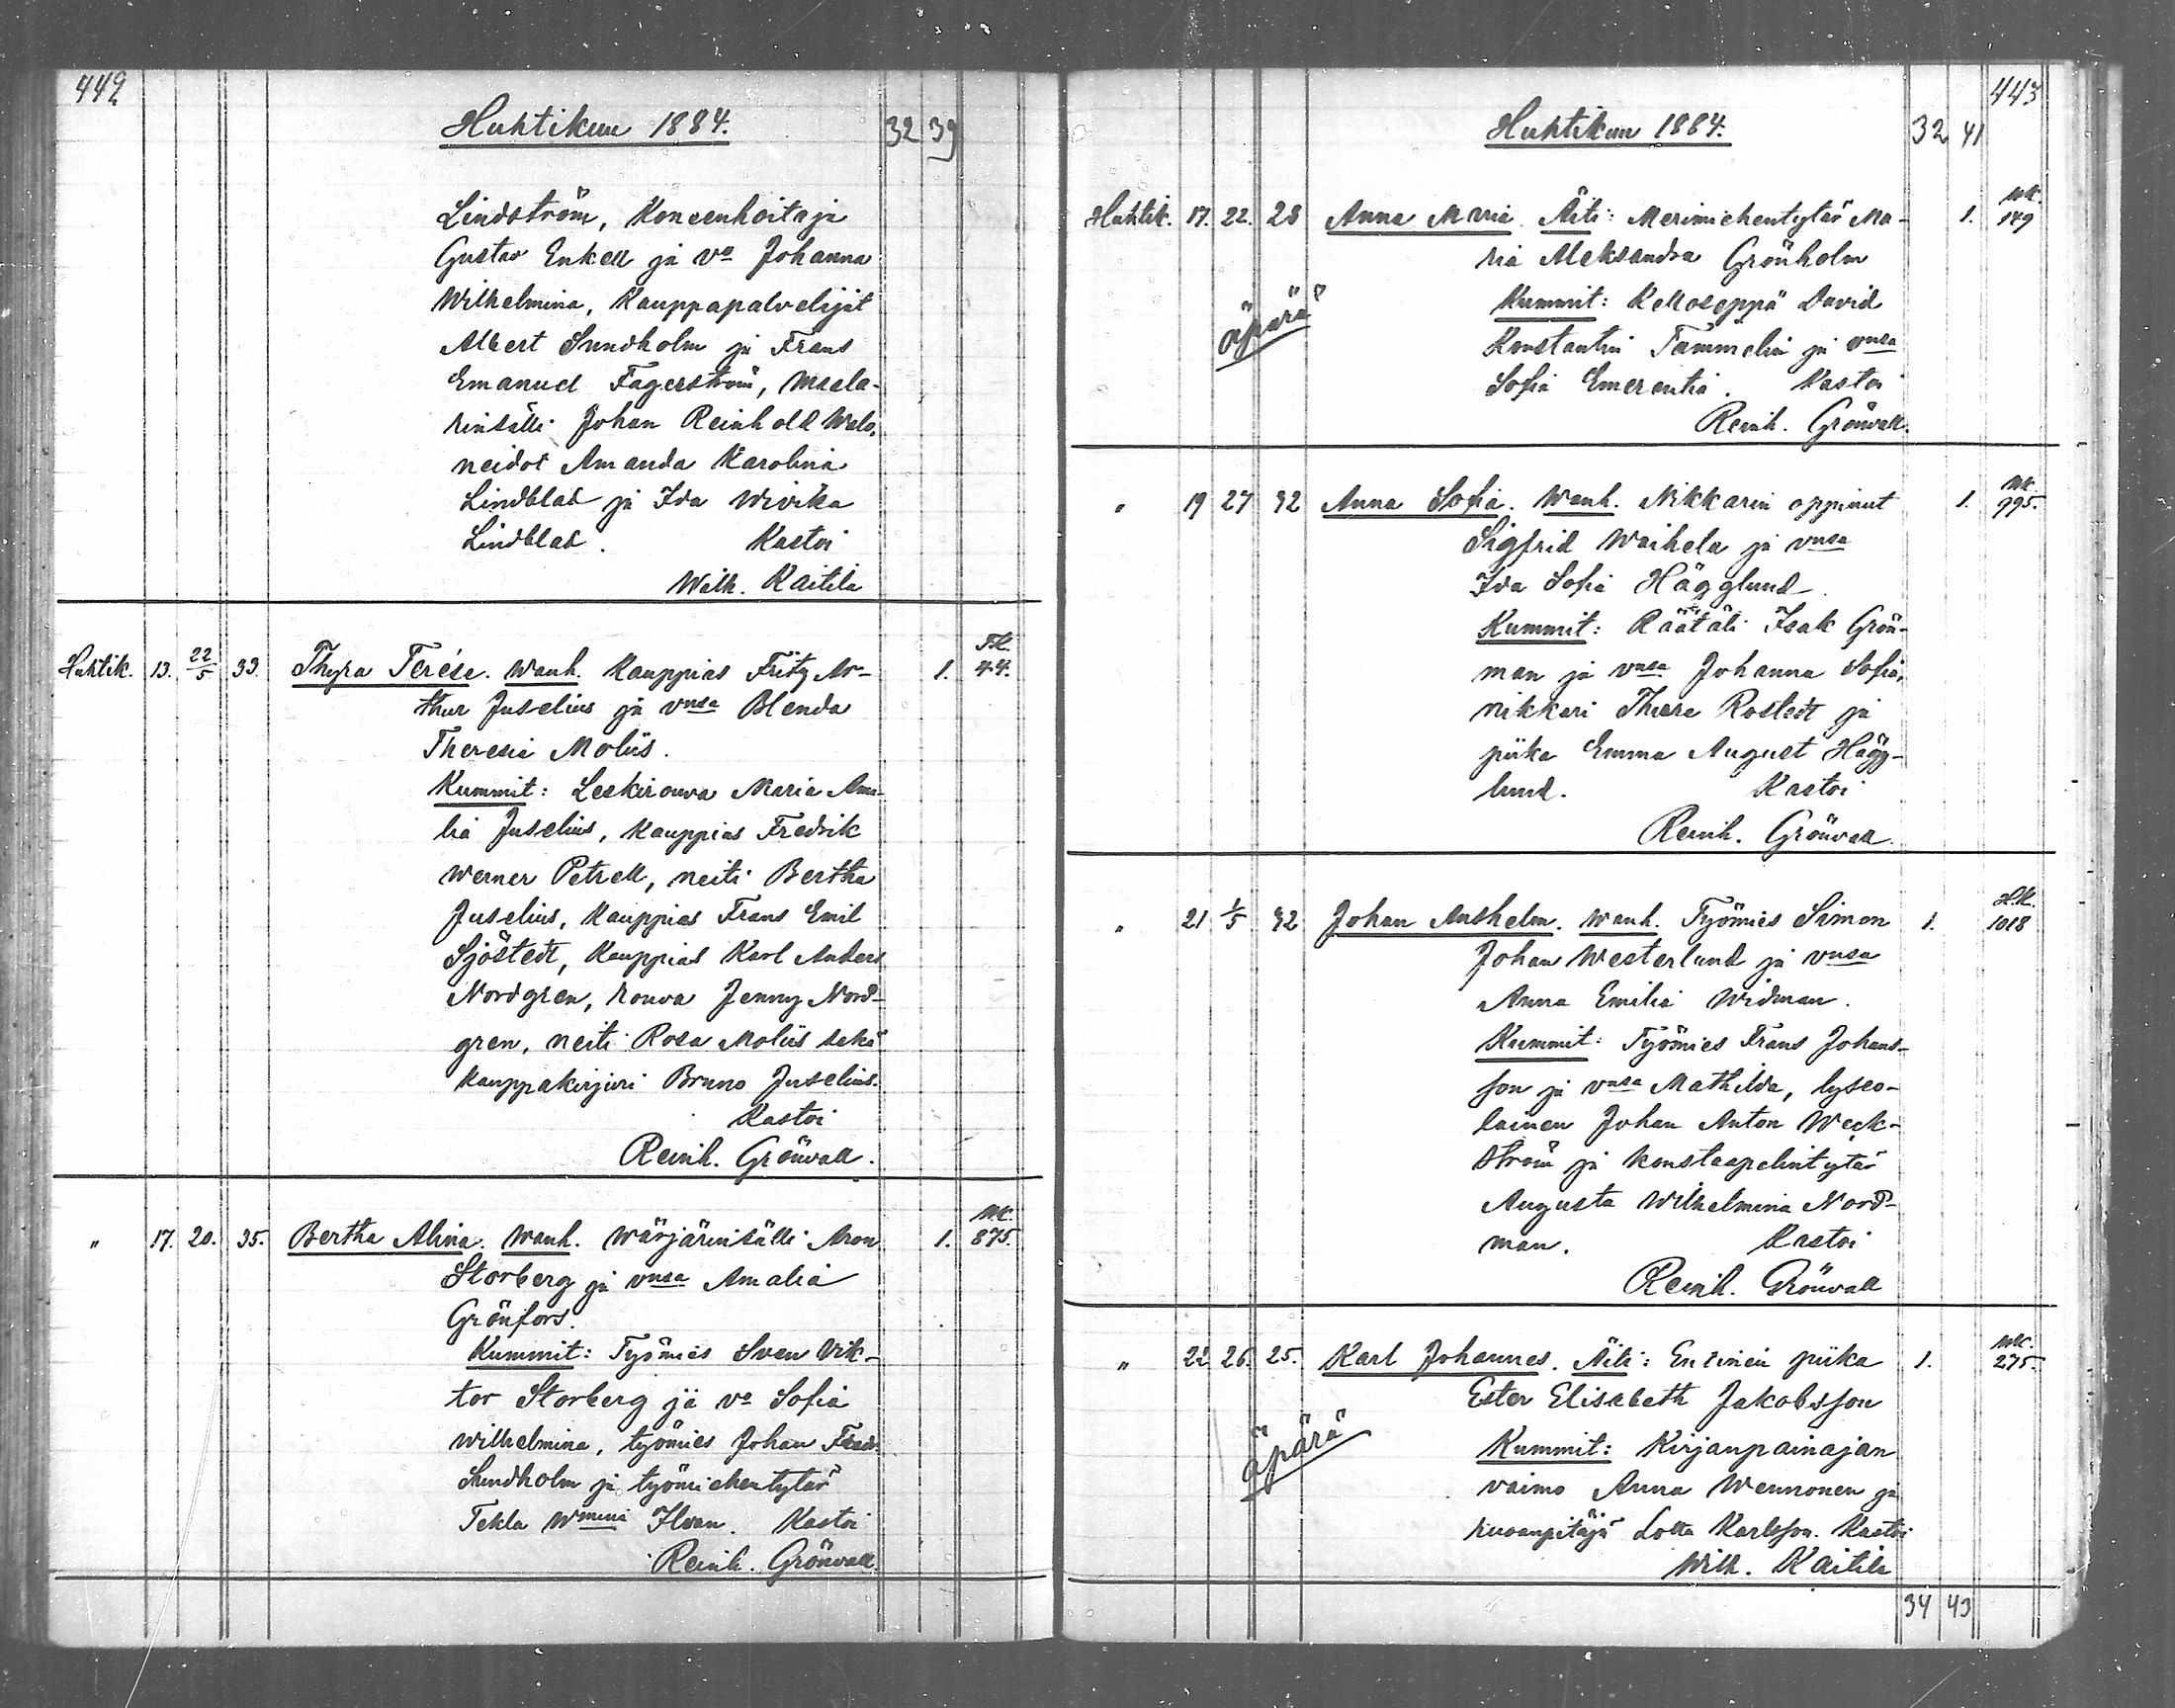 442
Huhtikuu 1884.
32 39
Lindström, Koneenhoitaja
Gustav Enkell ja va Johanna
Wilhelmina, Kauppapalvelijat
Albert Sundholm ja Frans
Emanuel Fagerström, maala-
rinsälli Johan Reinhold Walo,
neidot Amanda Karolina
Lindblad ja Ida Wivika
Lindblad. Kastoi
Wilh. Kaitila
Huhtik. 13. 22/5 33. Thyra Terése. Wanh. Kauppias Fritz Ar- 1. 44.
thur Juselius ja vnsa Blenda
Theresia Moliis.
Kummit: Leskirouva Maria Ama-
lia Juselius, Kauppias Fredrik
Werner Petrell, neiti Bertha
Juselius, Kauppias Frans Emil
Sjöstedt, Kauppias Karl Anders
Nordgren, rouva Jenny Nord-
gren, neiti Rosa Moliis sekä
Kauppakirjuri Bruno Juselius.
Kastoi
Reinh. Grönvall.
" 17. 20. 35. Bertha Alina. Wanh. Wärjärinsälli Aron 1. 875.
Storberg ja vnsa Amalia
Grönfors.
Kummit: Työmies Sven Vik-
tor Storberg ja va Sofia
Wilhelmina, työmies Johan Fredr.
Sundholm ja työmiehentytär
Tekla Wmina Ilvan. Kastoi
Reinh. Grönvall.
443
Huhtikuu 1884.
32 41
Huhtik. 17. 22. 28 Anna Maria. Äiti: Merimiehentytär Ma- 1. 149
ria Aleksandra Grönholm
äpärä
Kummit: Kelloseppä David
Konstantin Tammelin ja vnsa
Sofia Emerentia. Kastoi
Reinh. Grönvall.
" 19 27 32 Anna Sofia. Wanh. Nikkarin oppinut 1. 995.
Sigfrid Waihela ja vnsa
Ida Sofia Hägglund.
Kummit: Räätäli Isak Grön-
man ja vnsa Johanna Sofia,
nikkari Thure Rostedt ja
piika Emma August Hägg-
lund. Kastoi
Reinh. Grönvall.
" 21 1/5 32 Johan Anshelm. Wanh. Työmies Simon 1. 1018
Johan Westerlund ja vnsa
Anna Emilia Widman.
Kummit: Työmies Frans Johans-
son ja vnsa Mathilda, lyseo-
lainen Johan Anton Weck-
ström ja konstaapelintytär
Augusta Wilhelmina Nord-
man. Kastoi
Reinh. Grönvall
" 22 26. 25. Karl Johannes. Äiti: Entinen piika 1. 275.
Ester Elisabeth Jakobsson
äpärä
Kummit: Kirjanpainajan
vaimo Anna Wennonen ja
ruoanpitäjä Lotta Karlsson. Kastoi
Wilh. Kaitila
34 43